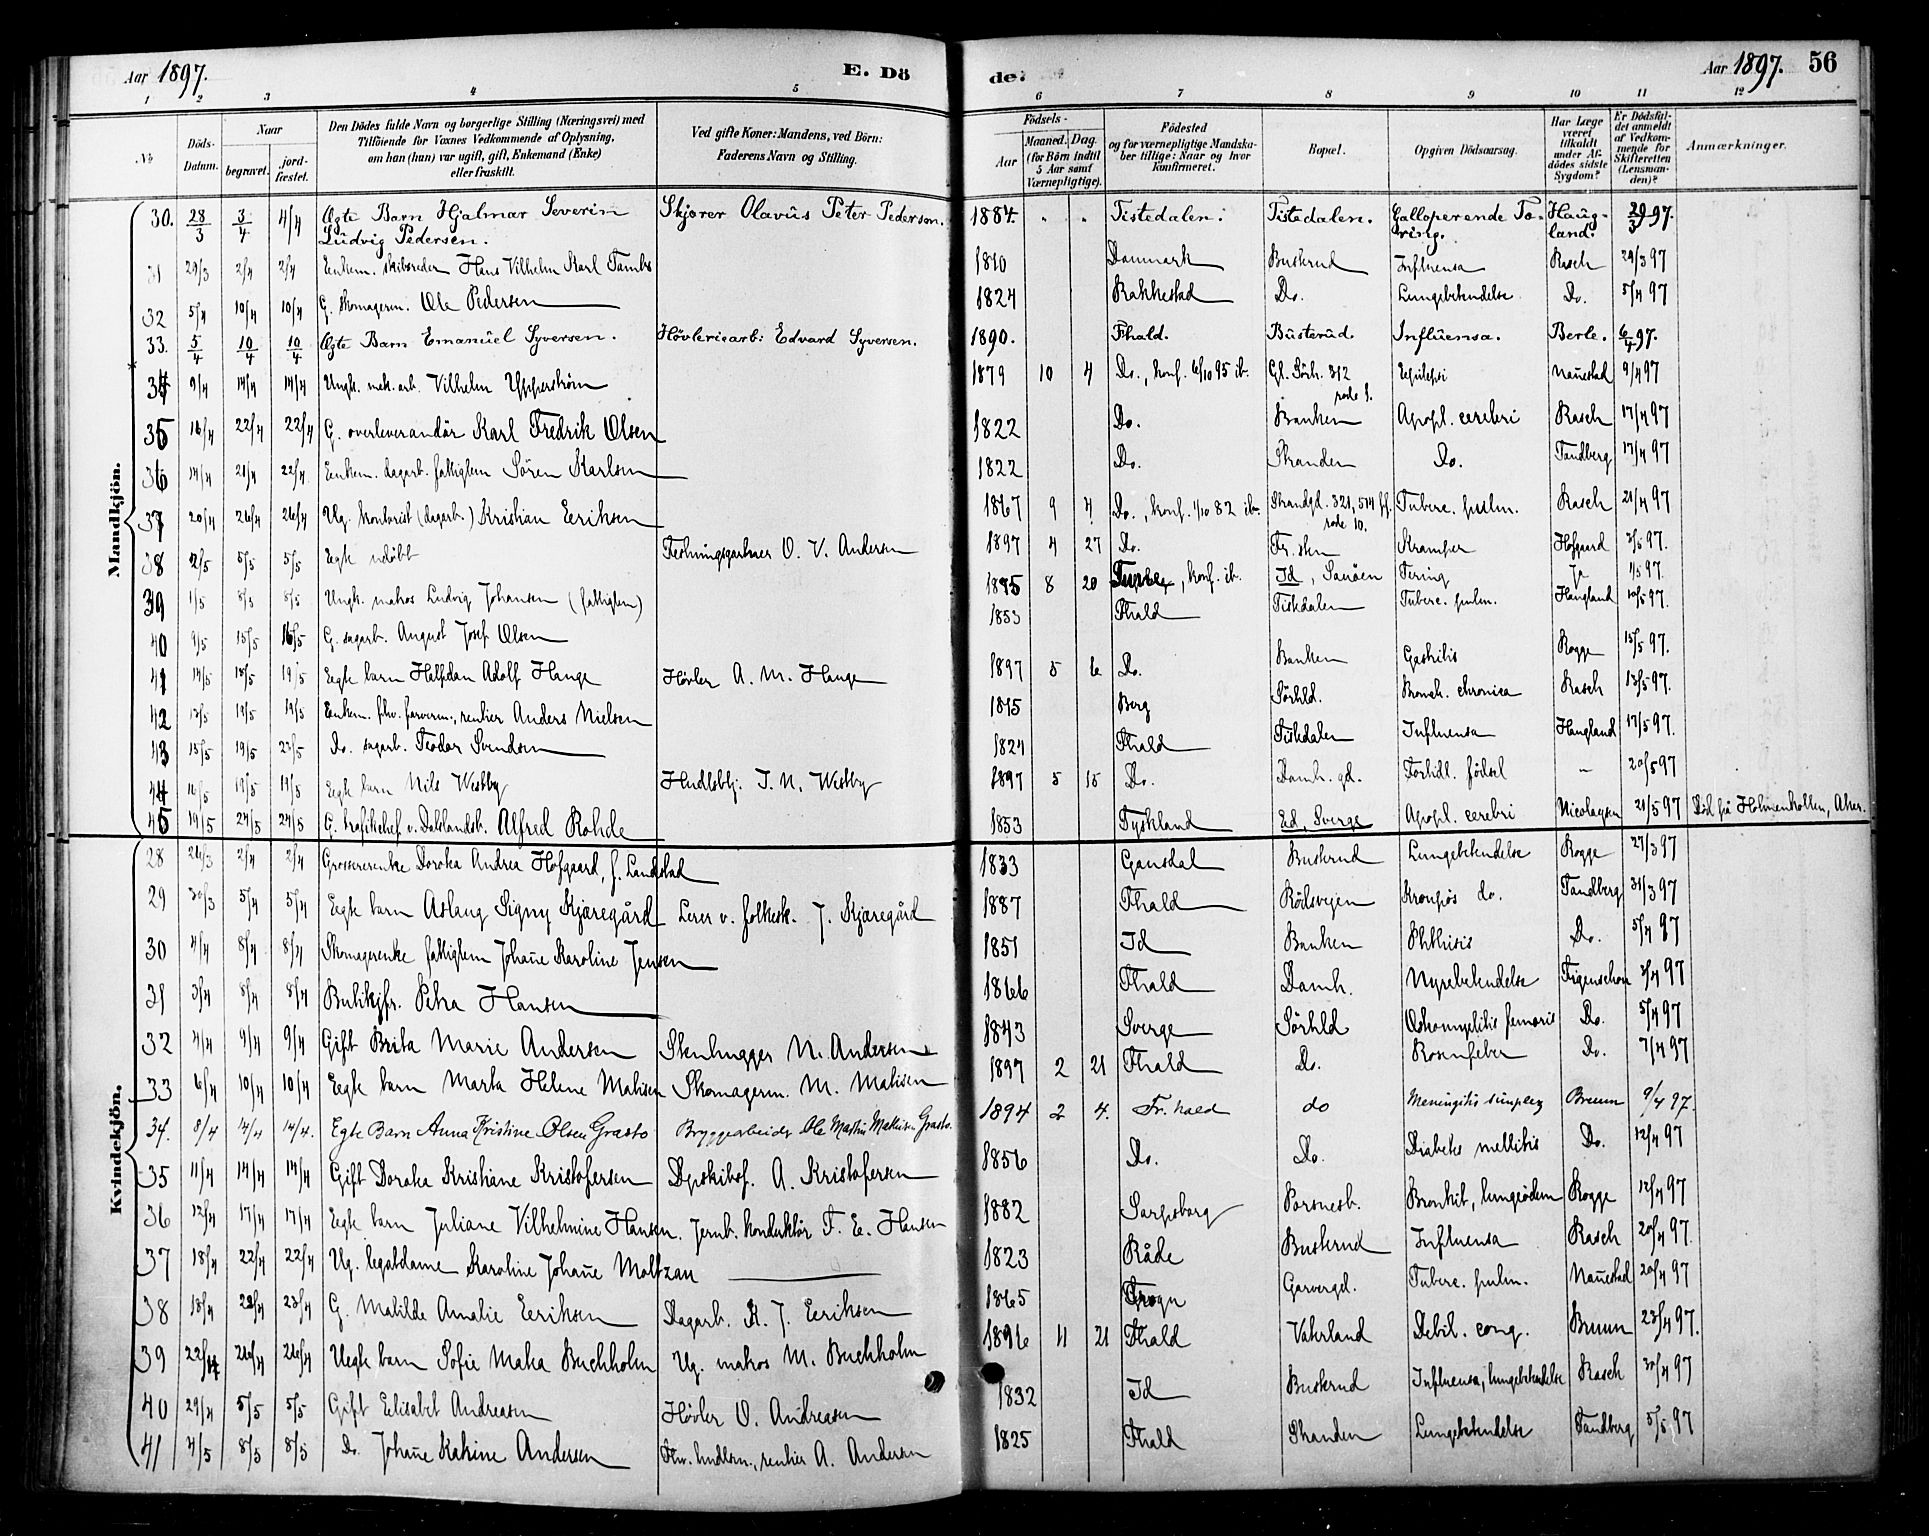 Aar 1897. E. Dö de. Aar 1897. 56
1 2 3 4 5 6 7 8 9 10 11 12
No. Döds-Datum. Naar begravet. jord-fæstet. Den Dödes fulde Navn og borgerlige Stilling (Næringsvei) med Tilföiende for Voxnes Vedkommende af Oplysning, om han (hun) var ugift, gift, Enkemand (Enke) eller fraskilt. Ved gifte Koner: Mandens, ved Börn: Faderens Navn og Stilling. Födsels- Aar Maaned. Dag. (for Börn indtil 5 Aar samt Værnepligtige). Födested og for værnepligtige Mandskaber tillige: Naar og hvor konfirmeret. Bopæl. Opgiven Dödsaarsag. Har Læge været tilkaldt under Afdödes sidste Sygdom? Er Dödsfaldet anmeldt af Vedkommende for Skifteretten (Lensmanden)? Anmærkninger.
Mandkjön.
30. 28/3 3/4 4/4 Ægte Barn Hjalmar Severin Ludvig Pedersen. Skjorer Olavus Peter Pedersen. 1884. " " Tistedalen. Tistedalen. Galloperende Tæring. Haugland. 29/3 97.
31 29/3 2/4 2/4 Enkem. skibsreder Hans Vilhelm Karl Tambs 1810 Danmark Buskrud Influensa Rasch 29/3 97
32 5/4 10/4 10/4 G. skomagerm. Ole Pedersen 1824 Rakkestad Do. Lungebetendelse Do. 5/4 97
33. 5/4 10/4 10/4 Ægte Barn Emanuel Syversen. Høvleriearb: Edvard Syversen. 1890. Fhald. Busterud. Influensa. Berle. 6/4 97.
34 9/4 14/4 14/4 Ungk. mek. arb. Vilhelm Ypperström 1879 10 4 Do., konf. 6/10 95 ib. Gl. Sörh. 312 rode 9. Epilepsi Nauestad 9/4 97
35 16/4 22/4 22/4 G. overleverandör Karl Fredrik Olsen 1822 Do. Banken Apopl. cerebri Rasch 17/4 97
36 14/4 21/4 22/4 Enkem. dagarb. fattiglem Sören Karlsen 1822 Do. Stranden Do. Tandberg 17/4 97
37 20/4 26/4 26/4 Ug. kontorist (dagarb.) Kristian Eeriksen 1867 9 4 Do., konf. 1/10 82 ib. Strandgd. 321, rode 10. Tuberc. pulm. Rasch 21/4 97
38 2/5 5/5 5/5 Egte udöbt Festningsgartner O. V. Andersen 1897 4 27 Do. Fr. sten Kramper Hofgaard 3/5 97.
39 1/5 8/5 8/5 Ungk. matros Ludvig Johansen (fattiglem) 1875 8 20 konf. ib. Id, Sauöen Tering Ja 1/5 97.
40 9/5 15/5 16/5 G. sagarb. August Josef Olsen 1853 Fhald Tistedalen Tuberc. pulm. Haugland 10/5 97.
41 14/5 18/5 19/5 Egte barn Halfdan Adolf Hauge Hövler A. M. Hauge 1897 5 6 Do. Banken Gastritis Rogge 15/5 97.
42 13/5 19/5 19/5 Enkem. fhv. farverm., rentier Anders Nielsen 1815 Berg Sörhld. Bronch. chronica Rasch 13/5 97.
43 15/5 19/5 23/5 Do. sagarb. Teodor Svendsen 1824 Fhald Tistedalen Influensa Haugland 17/5 97.
44 16/5 19/5 19/5 Egte barn Nils Westby Hndlsbtj. J. N. Westby 1897 5 15 Do. Damh. gd. Forhdl. födsel — 20/5 97
45 19/5 24/5 24/5 G. trafikchef v. Dalslandsb. Alfred Rohde 1853 Tyskland Ed, Sverge Apopl. cerebri Nicolaysen 21/5 97 Död på Holmenkollen, Aker.
Kvindekjön.
28 26/3 2/4 2/4 Grossererenke Dorotea Andrea Hofgaard, f. Landstad 1833 Gausdal Buskrud Lungebetendelse Rogge 27/3 97
29 30/3 5/4 5/4 Egte barn Aslaug Signy Kjæregård Lerer v. folkesk. J. Kjæregård 1887 Fhald Rödsvejen Krupös do. Tandberg 31/3 97
30 4/4 8/4 8/4 Skomagerenke fattiglem Johañe Karoline Jensen 1851 Id Banken Phthisis Do. 5/4 97
31 3/4 8/4 8/4 Butikjfr. Petra Hansen 1866 Fhald Damh. Nyrebetendelse Figenschou 3/4 97
32 4/4 9/4 9/4 Gift Brita Marie Andersen Stenhugger N. Andersen 1843 Sverge Sörhld Osteomyelitis femoris Do. 5/4 97
33 6/4 10/4 10/4 Egte barn Marta Helene Matisen Skomagerm. M. Matisen 1897 2 21 Fhald Do. Rosenfeber Do. 7/4 97
34. 8/4 14/4 14/4. Egte Barn Anna Kristine Olsen Grasto Bryggearbeider Ole Martin Mathisen Grasto. 1894 2 4. Fr. hald do Meningitis simplex Bruun 9/4 97.
35 11/4 14/4 14/4 Gift Dorotea Kristiane Kristofersen Dpskibsf. A. Kristofersen 1856 Do. Do. Diabetes mellitis Do. 12/4 97
36 12/4 17/4 17/4 Egte barn Juliane Vilhelmine Hansen. Jernb. konduktör F. E. Hansen 1882 Sarpsborg Porsnesb. Bronkit, lungeödem Rogge 12/4 97
37 18/4 22/4 22/4 Ug. legatdame Karoline Johañe Moltzau 1823 Råde Buskrud Influensa Rasch 20/4 97
38 18/4 23/4 23/4 G. Matilde Amalie Eeriksen Dagarb. K. J. Eeriksen 1865 Trogn Garvergd. Tuberc. pulm. Nauestad 20/4 97
39 22/4 26/4 26/4 Uegte barn Sofie Maka Buchholm Ug. matros M. Buchholm 1896 11 21 Fhald Vaterland Debil. cong. Bruun 23/4 97.
40 29/4 5/5 5/5 Gift Elisabet Andreasen Hövler O. Andreasen 1832 Id Buskrud Influensa, lungebetendelse Rasch 30/4 97
41 4/5 8/5 8/5 Do. Johañe Katrine Andersen Fhv. hndlsm., rentier A. Andersen 1825 Fhald Stranden Lungebetendelse Tandberg 5/5 97